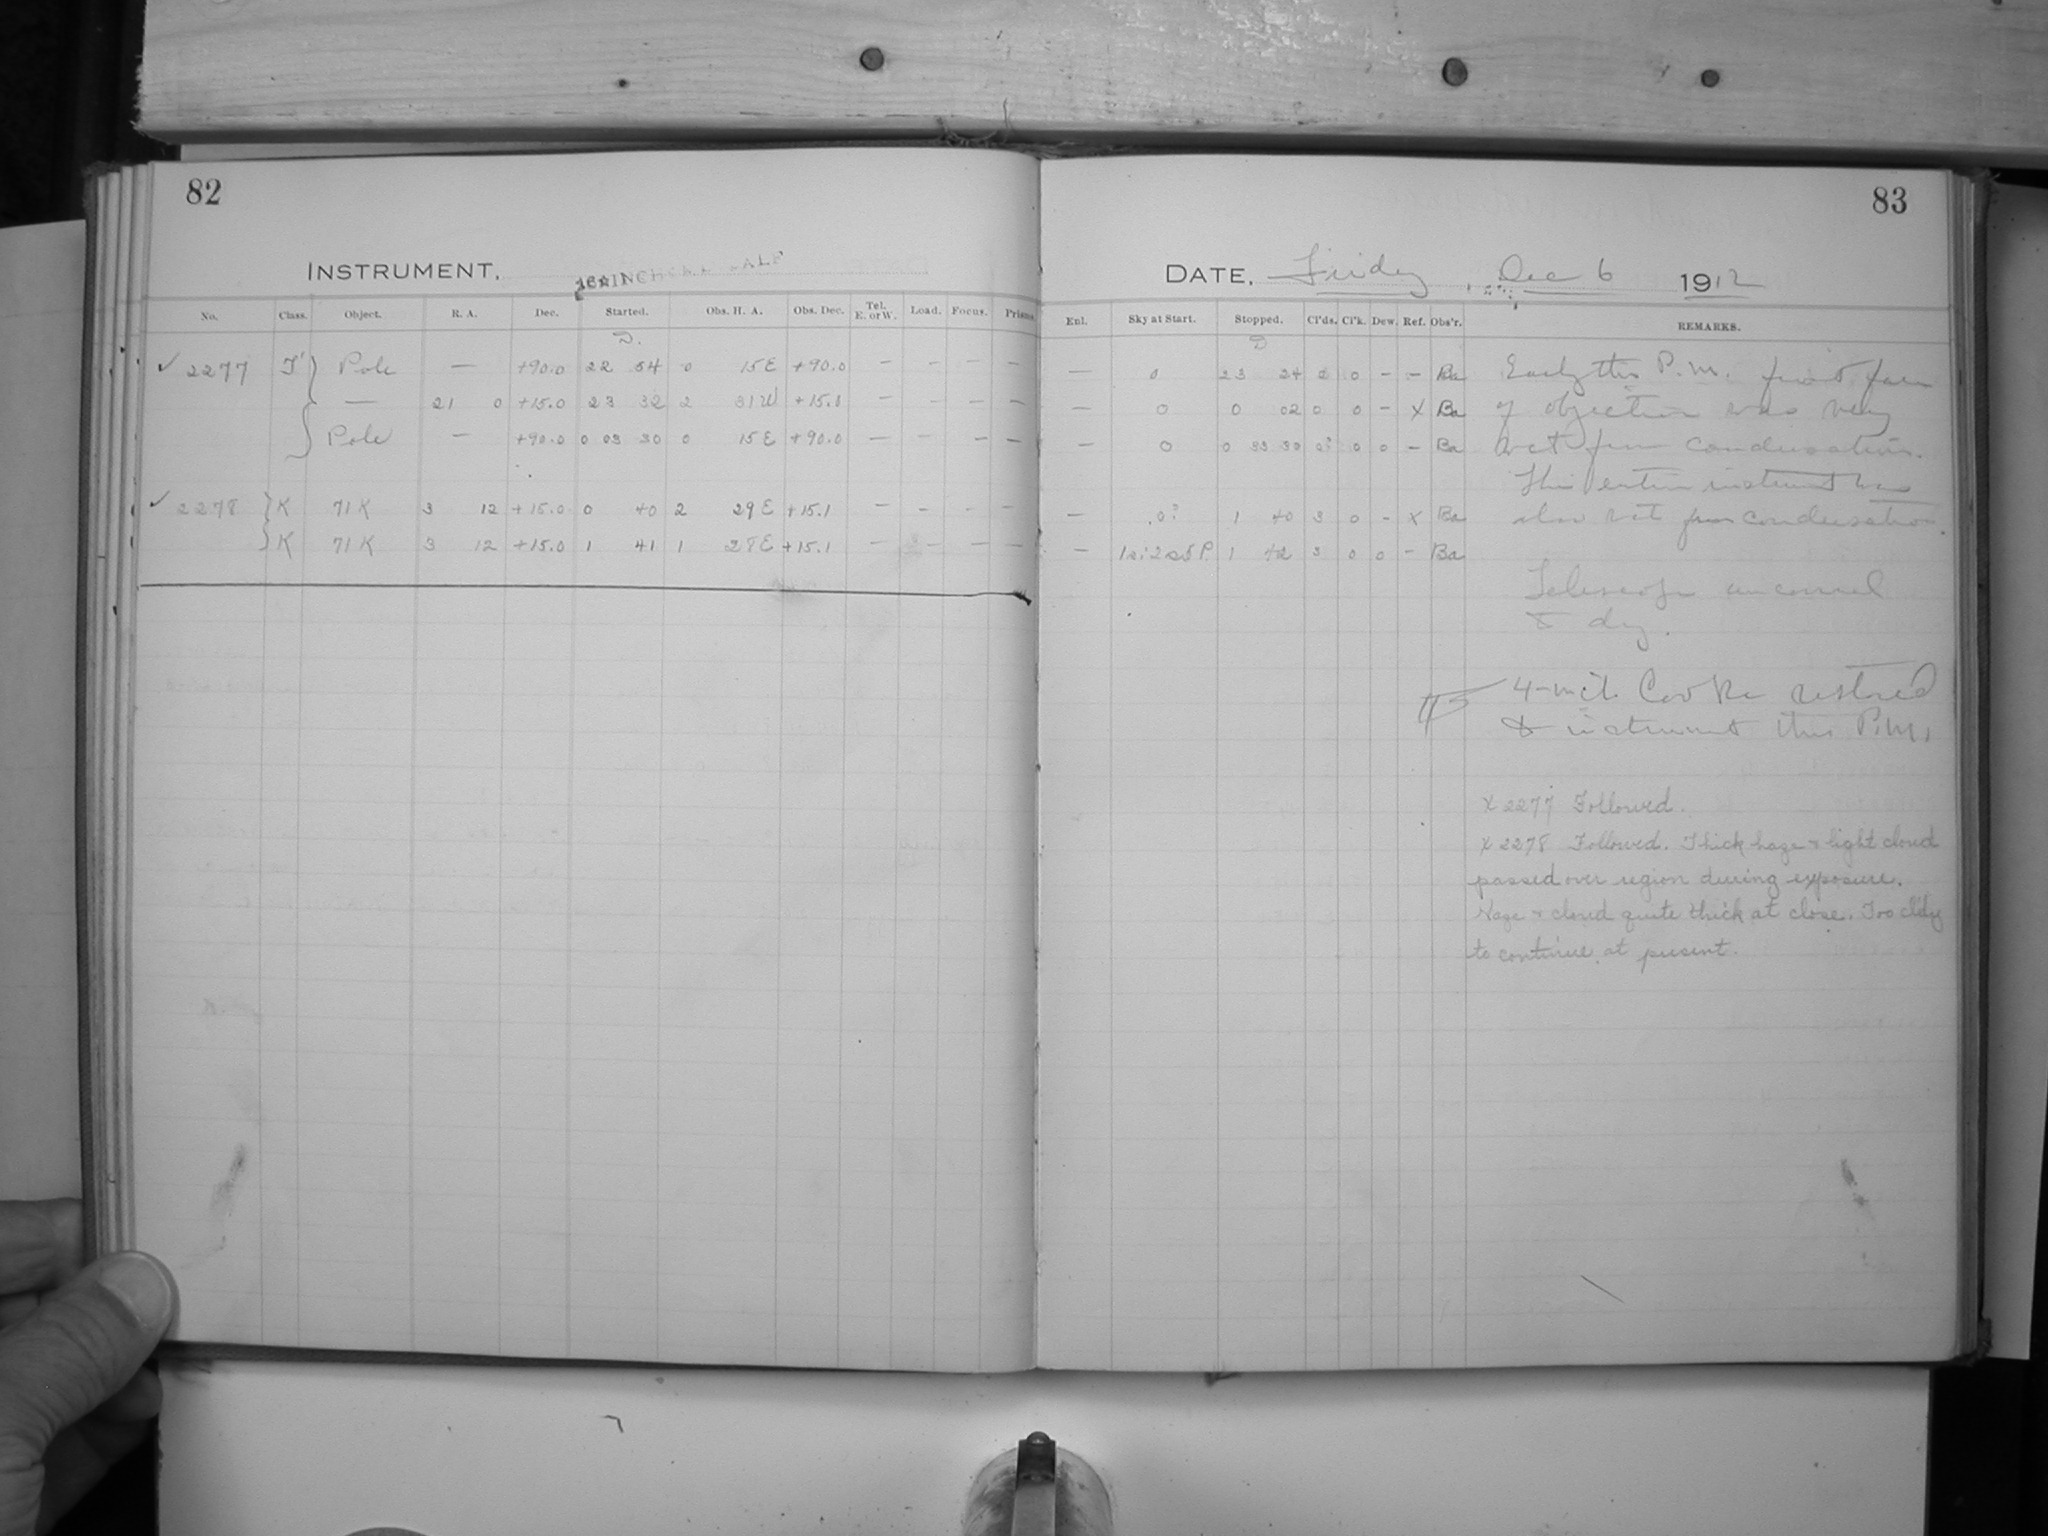 82
INSTRUMENT,
No. Class. Object. R. A. Dec. Started. Obs. H. A. Obs. Dec. Tel. E. or W. Load. Focus. Prisms
D.
✓ 2277 I' Pole — +90.0 22 54 0 15 E +90.0 — — — —
— 21 0 +15.0 23 32 2 31 W +15.1 — — — —
Pole — +90.0 0 03 30 0 15 E +90.0 — — — —
✓ 2278 K 71 K 3 12 +15.0 0 40 2 29 E +15.1 — — — —
K 71 K 3 12 +15.0 1 41 1 28 E +15.1 — — — —
83
DATE, Friday, Dec 6 1912
Enl. Sky at Start. Stopped. Cl'ds. Cl'k. Dew. Ref. Obs'r. REMARKS.
D
— 0 23 24 0 – – Ba Early this P.M. front
— 0 0 02 0 0 – X Ba of objective was very
— 0 0 33 30 0? 0 0 – Ba wet from condensation.
This entire instrument was
— 0? 1 40 3 0 – X Ba also wet from condensation
— 1 42 3 0 0 – Ba
Telescope uncovered
& dry.
4-inch Cooke restored
to instrument this P.M.
X 2277 Followed.
X 2278 Followed. Thick haze & light cloud
passed over region during exposure.
Haze & cloud quite thick at close. Too cl'dy
to continue at present.